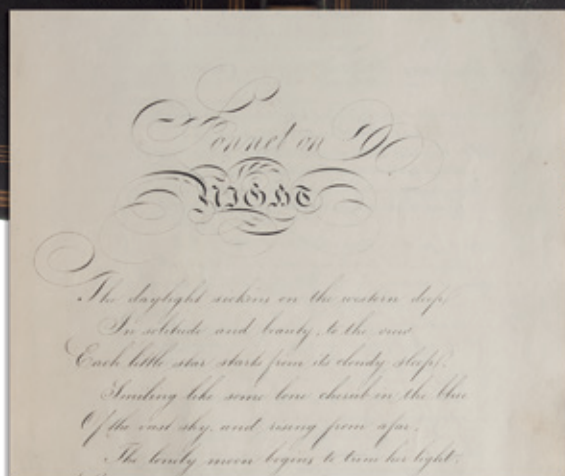 Sonnet on
NIGHT
The daylight sickens on the western deep,
In solitude and beauty, to the view
Each little star starts from its cloudy sleep,
Smiling like some lone cherub in the blue
Of the vast sky, and rising from afar,
The lonely moon begins to trim her light,